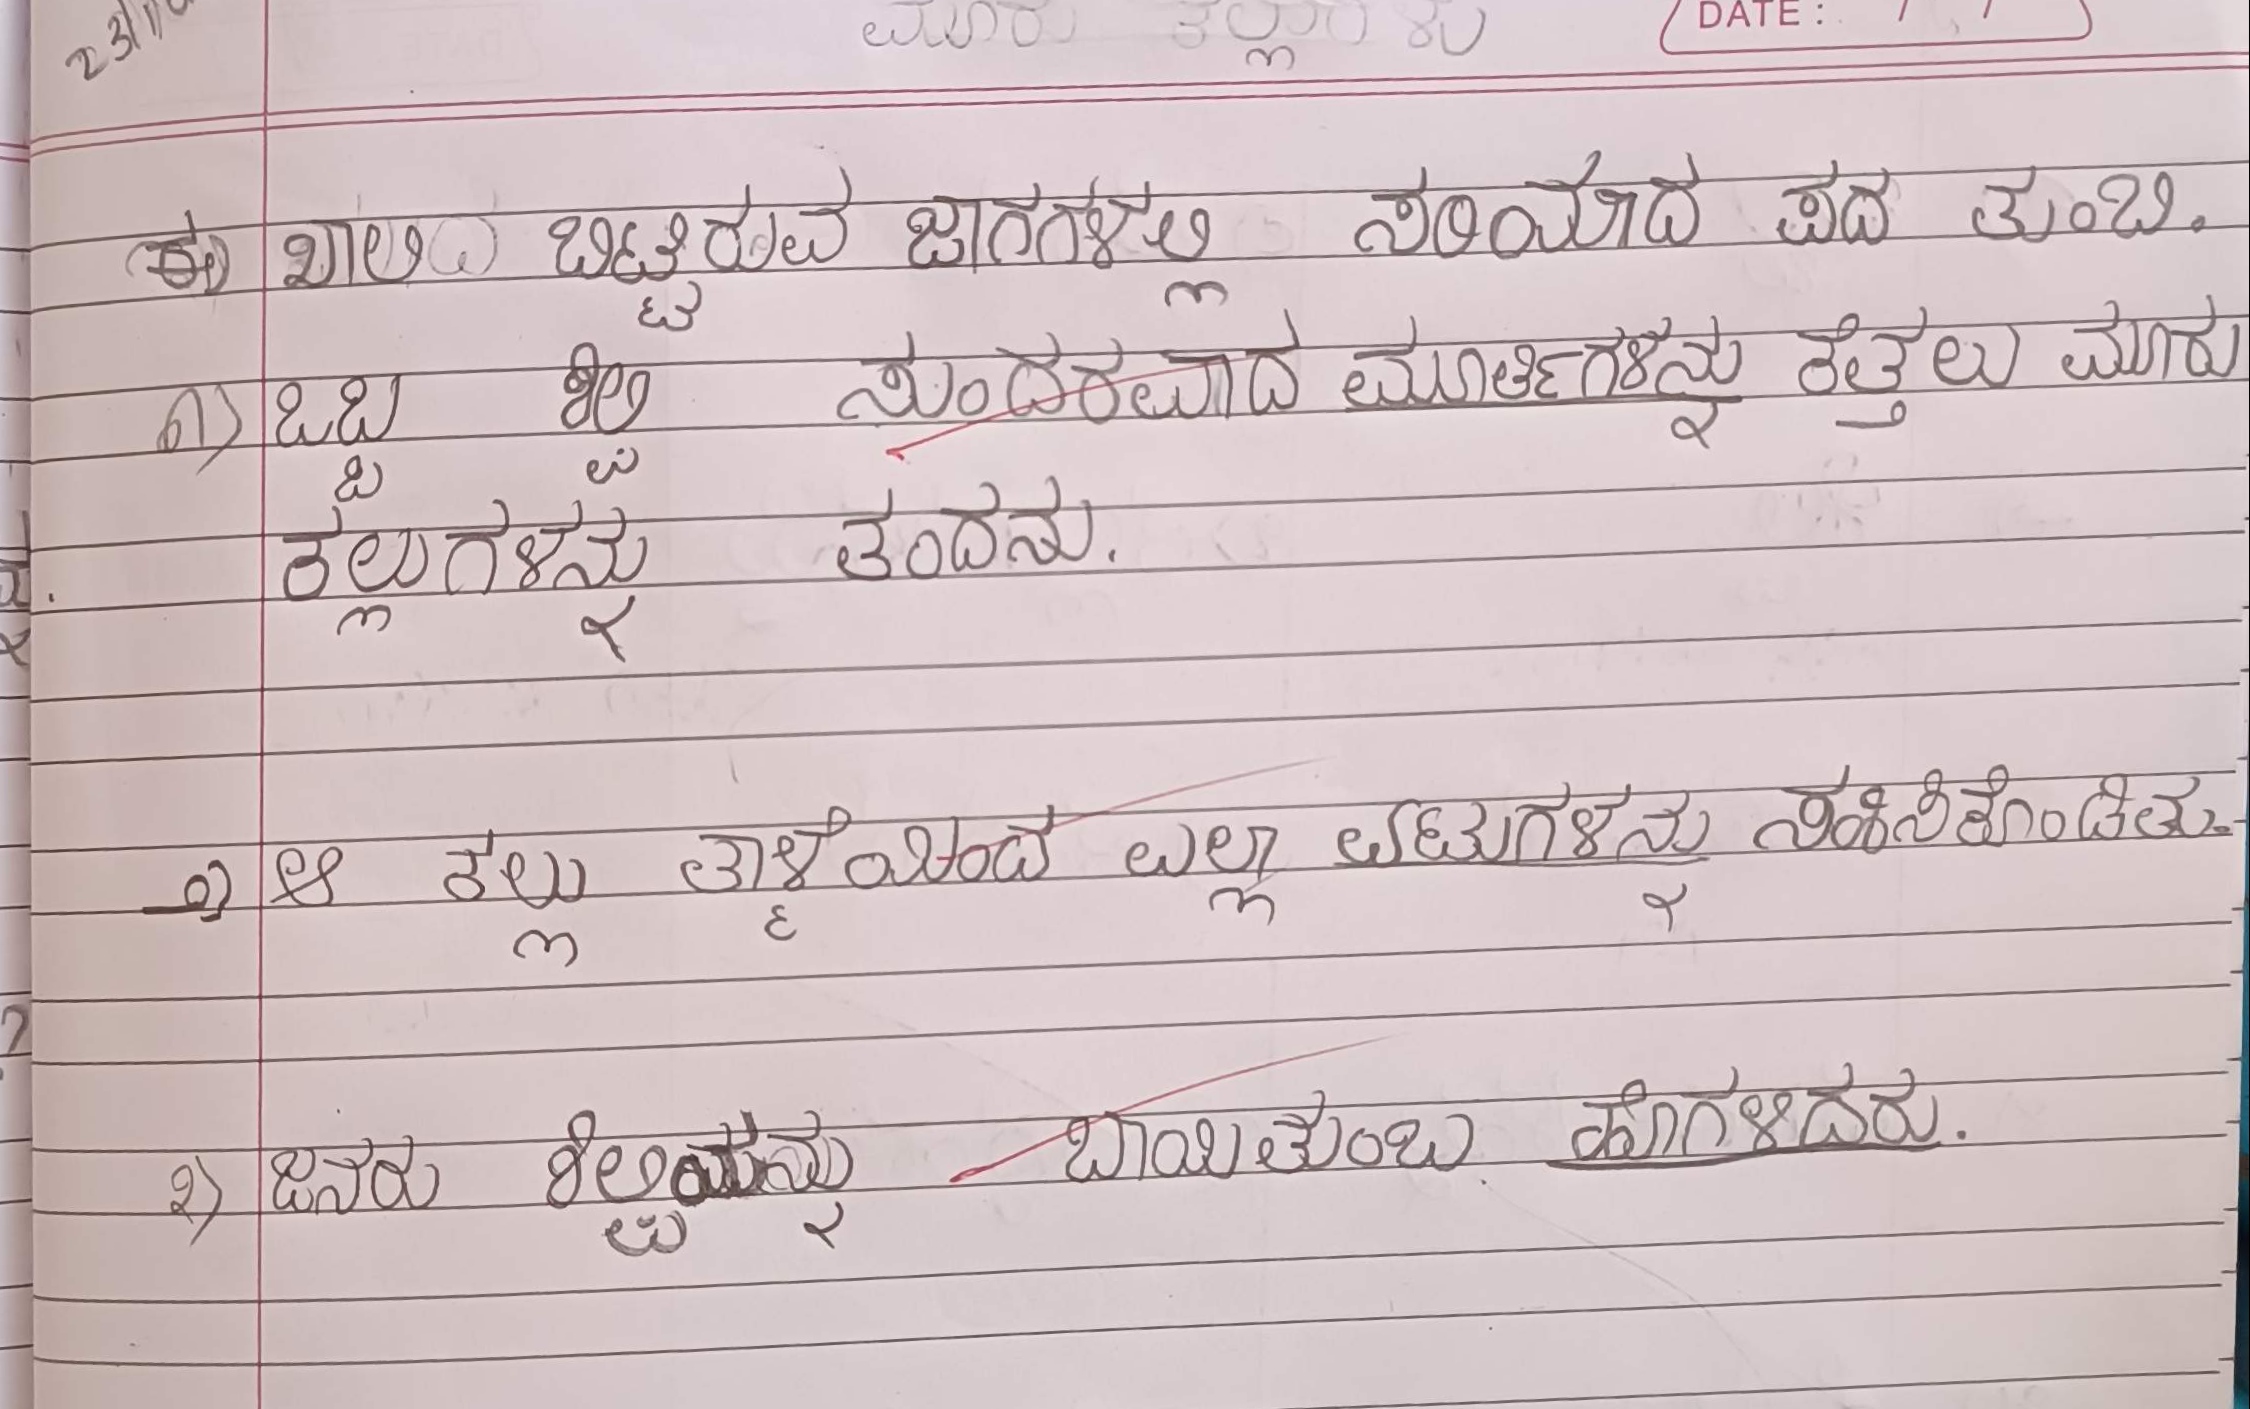 23/11
ಮೂರು ಕಲ್ಲುಗಳು
DATE: / /
ಈ) ಖಾಲಿ ಬಿಟ್ಟಿರುವ ಜಾಗಗಳಲ್ಲಿ ಸರಿಯಾದ ಪದ ತುಂಬಿ.
೧) ಒಬ್ಬ ಶಿಲ್ಪಿ ಸುಂದರವಾದ ಮೂರ್ತಿಗಳನ್ನು ಕೆತ್ತಲು ಮೂರು
ಕಲ್ಲುಗಳನ್ನು ತಂದನು.
೨) ಆ ಕಲ್ಲು ತಾಳ್ಮೆಯಿಂದ ಎಲ್ಲಾ ಏಟುಗಳನ್ನು ಸಹಿಸಿಕೊಂಡಿತು.
೩) ಜನರು ಶಿಲ್ಪಿಯನ್ನು ಬಾಯಿತುಂಬ ಹೊಗಳಿದರು.